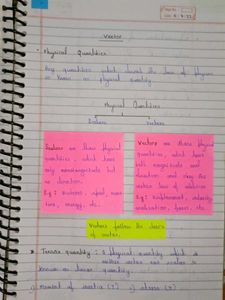 Vector
• Physical Quantities
Any quantities which the laws of physics
is known as physical quantity.
Physical Quantities
Scalars Vectors
Scalars are those physical
quantities, which have
only magnitude but
no direction.
Eg: Distance, speed, mass
time, energy, etc.
Vectors are those physical
quantities, which have
both magnitude and
direction and obey the
vector law of addition.
Eg: Displacement, velocity
acceleration, force, etc.
Vectors follow the laws
of vector.
Tensor quantity: A physical quantity which is
neither vector nor scalar is
known as tensor quantity.
i) Moment of inertia (I) ii) stress (σ)